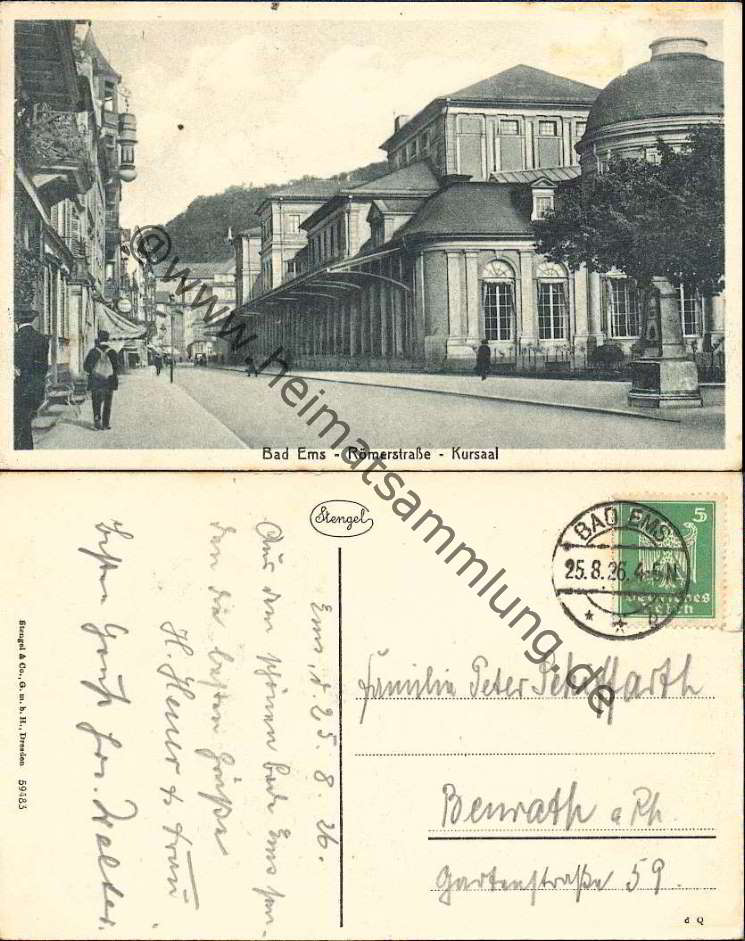 Bad Ems - Römerstraße - Kursaal
@www.heimatsammlung.de
Stengel
BAD EMS
25.8.26. 4-5 N
* * b
5
Deutsches
Reich
Ems, d. 25. 8. 26.
Aus dem schönen Bade Ems sen-
den die besten Grüße
H. Heuer & Frau
Besten Gruß Frs. Walter.
Familie Peter
Benrath a Rh.
Gartenstraße 59.
Stengel & Co., G. m. b. H., Dresden 59483
d Q